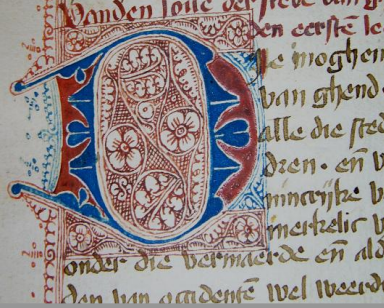 Vanden love der stede van g
den eersten le
ie moghen
van ghend
alle die sted
dren · en v
mincrijke v
merkelic v
onder die vermaerde en ald
dan van occidenten wel weerd